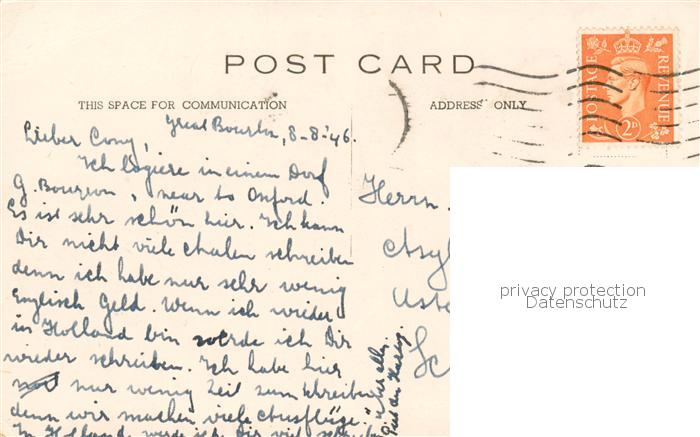 POST CARD
THIS SPACE FOR COMMUNICATION
ADDRESS ONLY
POSTAGE
REVENUE
2D
Great Bourton, 8-8-'46.
Lieber Cony,
Ich logiere in einem Dorf
G. Bourton, near to Oxford.
Es ist sehr schön hier. Ich kann
Dir nicht viele malen schreiben
denn ich habe nur sehr wenig
Englisch Geld. Wenn ich wieder
in Holland bin werde ich Dir
wieder schreiben. Ich habe hier
nur wenig Zeit zum schreiben
denn wir machen viele Ausflüge.
In Holland werde ich Dir viel schreiben
Herrn
Asyl
Uste
privacy protection
Datenschutz